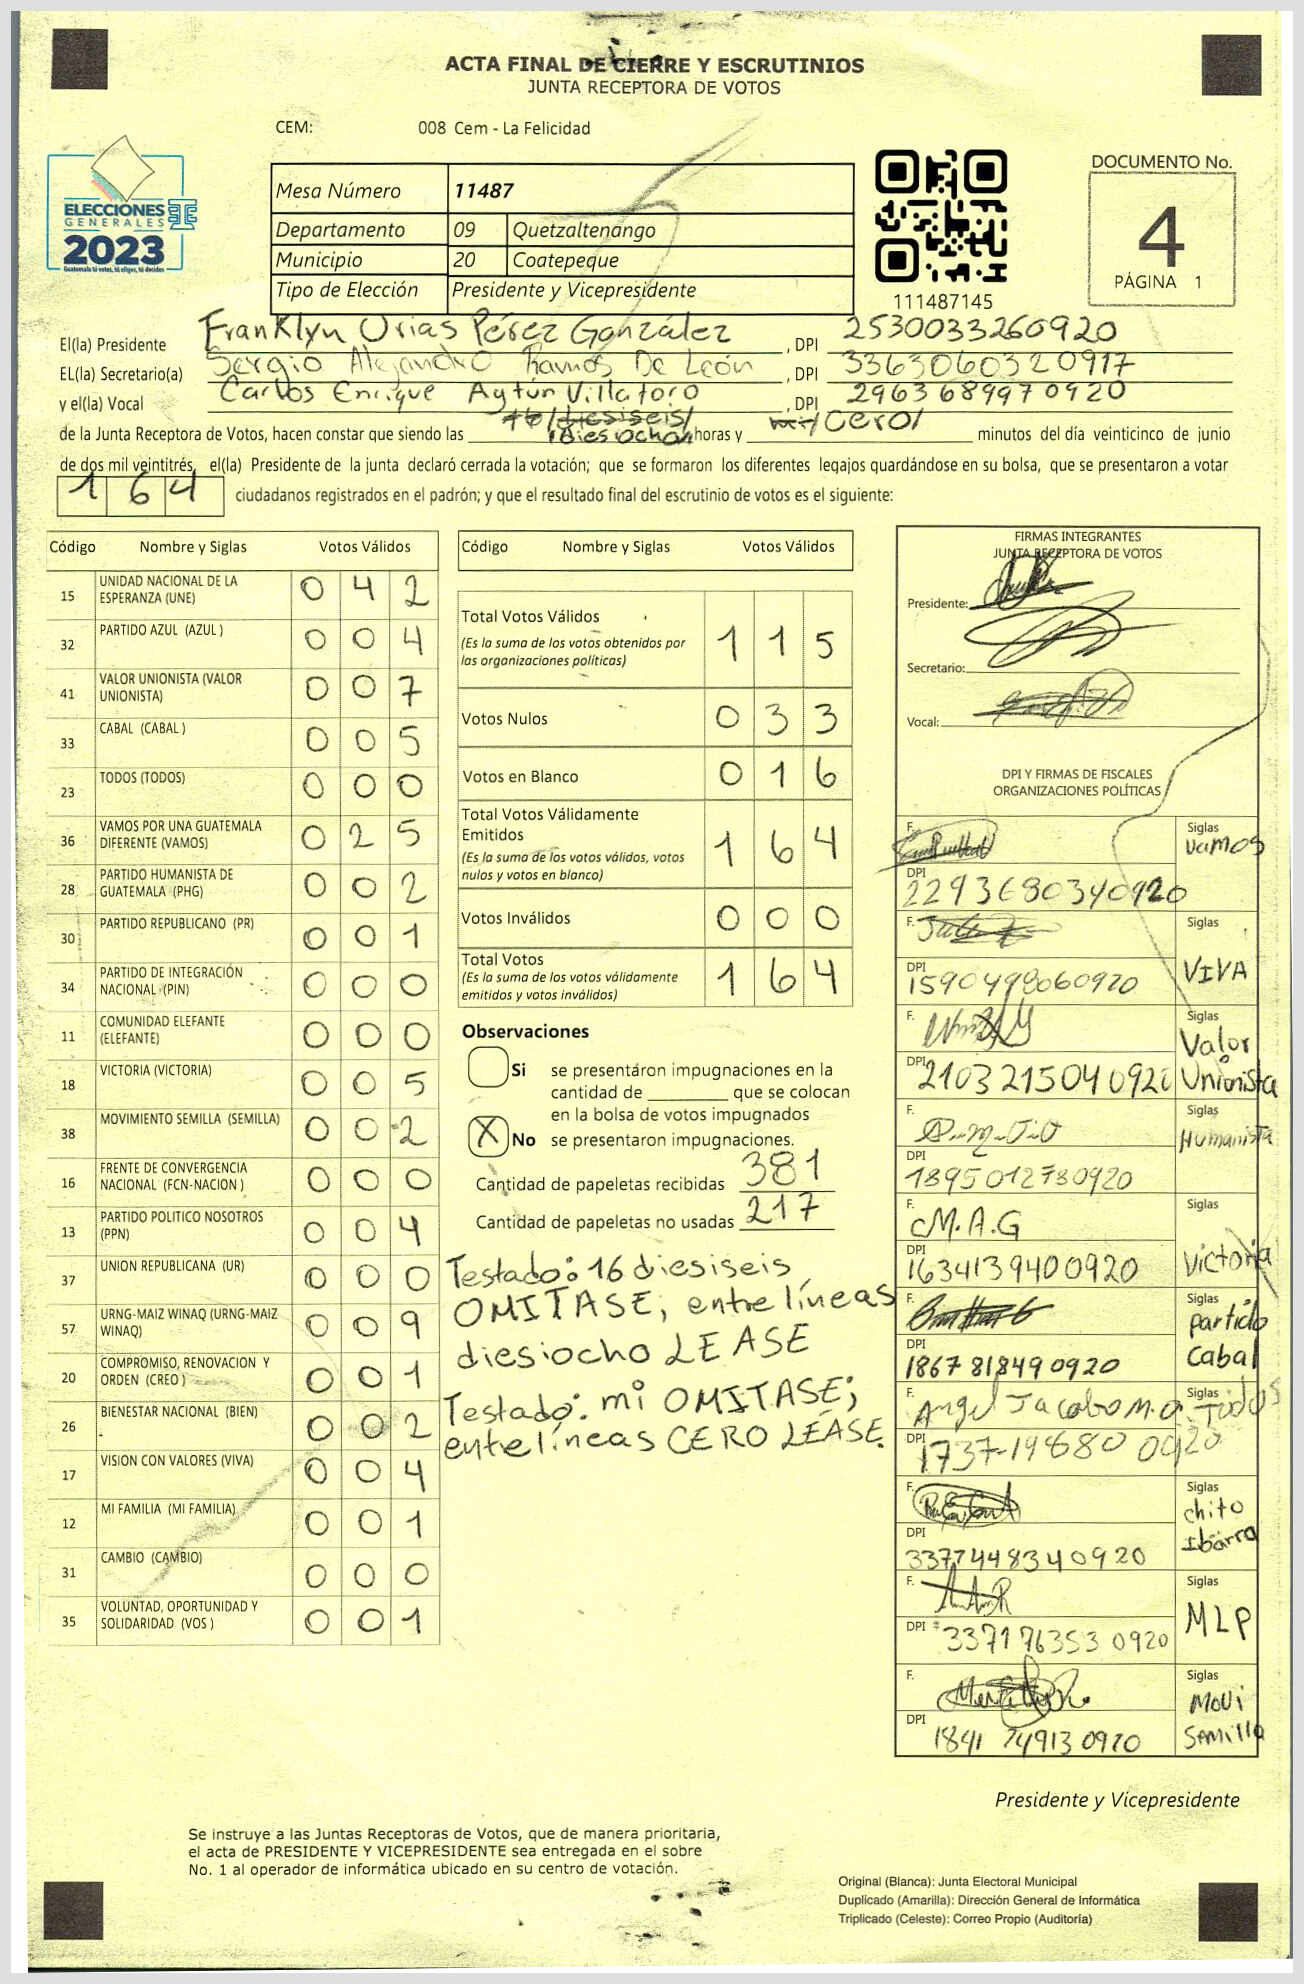 ACTA FINAL DE CIERRE Y ESCRUTINIOS
JUNTA RECEPTORA DE VOTOS
CEM: 008 Cem - La Felicidad
ELECCIONES
GENERALES
2023
Guatemala tú votas, tú eliges, tú decides
Mesa Número 11487
Departamento 09 Quetzaltenango
Municipio 20 Coatepeque
Tipo de Elección Presidente y Vicepresidente
111487145
DOCUMENTO No.
4
PÁGINA 1
El(la) Presidente Franklyn Urias Pérez González , DPI 2530033260920
EL(la) Secretario(a) Sergio Alejandro Ramos De León , DPI 3363060320917
y el(la) Vocal Carlos Enrique Aytún Villatoro , DPI 2963689970920
16/diesiseis/ /Cero/
de la Junta Receptora de Votos, hacen constar que siendo las /diesiocho/ horas y minutos del día veinticinco de junio
de dos mil veintitrés, el(la) Presidente de la junta declaró cerrada la votación; que se formaron los diferentes legajos quardándose en su bolsa, que se presentaron a votar
1 6 4 ciudadanos registrados en el padrón; y que el resultado final del escrutinio de votos es el siguiente:
Código Nombre y Siglas Votos Válidos
15 UNIDAD NACIONAL DE LA ESPERANZA (UNE) 0 4 2
32 PARTIDO AZUL (AZUL ) 0 0 4
41 VALOR UNIONISTA (VALOR UNIONISTA) 0 0 7
33 CABAL (CABAL ) 0 0 5
23 TODOS (TODOS) 0 0 0
36 VAMOS POR UNA GUATEMALA DIFERENTE (VAMOS) 0 2 5
28 PARTIDO HUMANISTA DE GUATEMALA (PHG) 0 0 2
30 PARTIDO REPUBLICANO (PR) 0 0 1
34 PARTIDO DE INTEGRACIÓN NACIONAL (PIN) 0 0 0
11 COMUNIDAD ELEFANTE (ELEFANTE) 0 0 0
18 VICTORIA (VICTORIA) 0 0 5
38 MOVIMIENTO SEMILLA (SEMILLA) 0 0 2
16 FRENTE DE CONVERGENCIA NACIONAL (FCN-NACION ) 0 0 0
13 PARTIDO POLITICO NOSOTROS (PPN) 0 0 4
37 UNION REPUBLICANA (UR) 0 0 0
57 URNG-MAIZ WINAQ (URNG-MAIZ WINAQ) 0 0 9
20 COMPROMISO, RENOVACION Y ORDEN (CREO ) 0 0 1
26 BIENESTAR NACIONAL (BIEN) 0 0 2
17 VISION CON VALORES (VIVA) 0 0 4
12 MI FAMILIA (MI FAMILIA) 0 0 1
31 CAMBIO (CAMBIO) 0 0 0
35 VOLUNTAD, OPORTUNIDAD Y SOLIDARIDAD (VOS ) 0 0 1
Código Nombre y Siglas Votos Válidos
Total Votos Válidos 1 1 5
(Es la suma de los votos obtenidos por
las organizaciones políticas)
Votos Nulos 0 3 3
Votos en Blanco 0 1 6
Total Votos Válidamente
Emitidos 1 6 4
(Es la suma de los votos válidos, votos
nulos y votos en blanco)
Votos Inválidos 0 0 0
Total Votos 1 6 4
(Es la suma de los votos válidamente
emitidos y votos inválidos)
Observaciones
Si se presentáron impugnaciones en la
cantidad de ________ que se colocan
en la bolsa de votos impugnados
X No se presentaron impugnaciones.
Cantidad de papeletas recibidas 381
Cantidad de papeletas no usadas 217
Testado: 16 diesiseis
OMITASE, entre líneas
diesiocho LEASE
Testado: mi OMITASE;
entre líneas CERO LEASE.
FIRMAS INTEGRANTES
JUNTA RECEPTORA DE VOTOS
Presidente:
Secretario:
Vocal:
DPI Y FIRMAS DE FISCALES
ORGANIZACIONES POLÍTICAS
F. Siglas Vamos
DPI 2293680340920
F. Siglas VIVA
DPI 1590498060920
F. Siglas Valor Unionista
DPI 2103215040920
F. Siglas Humanista
DPI 1895012780920
F. M.A.G Siglas Victoria
DPI 1634139400920
F. Siglas partido Cabal
DPI 1867818490920
F. Angel Jacobo M.O. Siglas Todos
DPI 1737-19680 0920
F. Siglas chito Ibarra
DPI 3377448340920
F. Siglas MLP
DPI 3371763530920
F. Siglas Movi Semilla
DPI 1841 74913 0920
Presidente y Vicepresidente
Se instruye a las Juntas Receptoras de Votos, que de manera prioritaria,
el acta de PRESIDENTE Y VICEPRESIDENTE sea entregada en el sobre
No. 1 al operador de informática ubicado en su centro de votación.
Original (Blanca): Junta Electoral Municipal
Duplicado (Amarilla): Dirección General de Informática
Triplicado (Celeste): Correo Propio (Auditoría)